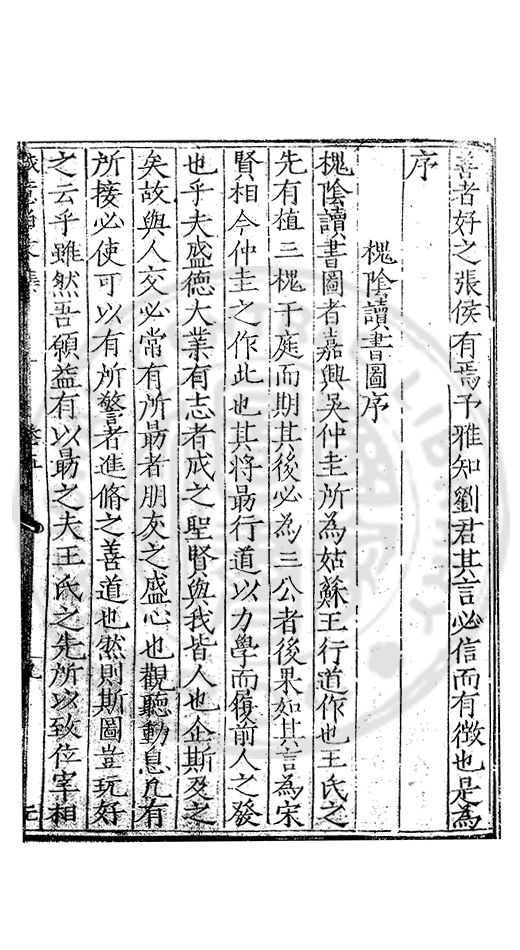 善者好之張侯有焉予雅知劉君其言必信而有徵也是為
序
槐陰讀書圖序
槐陰讀書圖者嘉興吳仲圭所為姑蘇王行道作也王氏之
先有植三槐于庭而期其後必為三公者後果如其言為宋
賢相今仲圭之作此也其將勗行道以力學而履前人之發
也乎夫盛德大業有志者成之聖賢與我皆人也企斯及之
矣故與人交必常有所勗者朋友之盛心也觀聽動息凡有
所接必使可以有所警者進脩之善道也然則斯圖豈玩好
之云乎雖然吾願益有以勗之夫王氏之先所以致位宰相
卷五